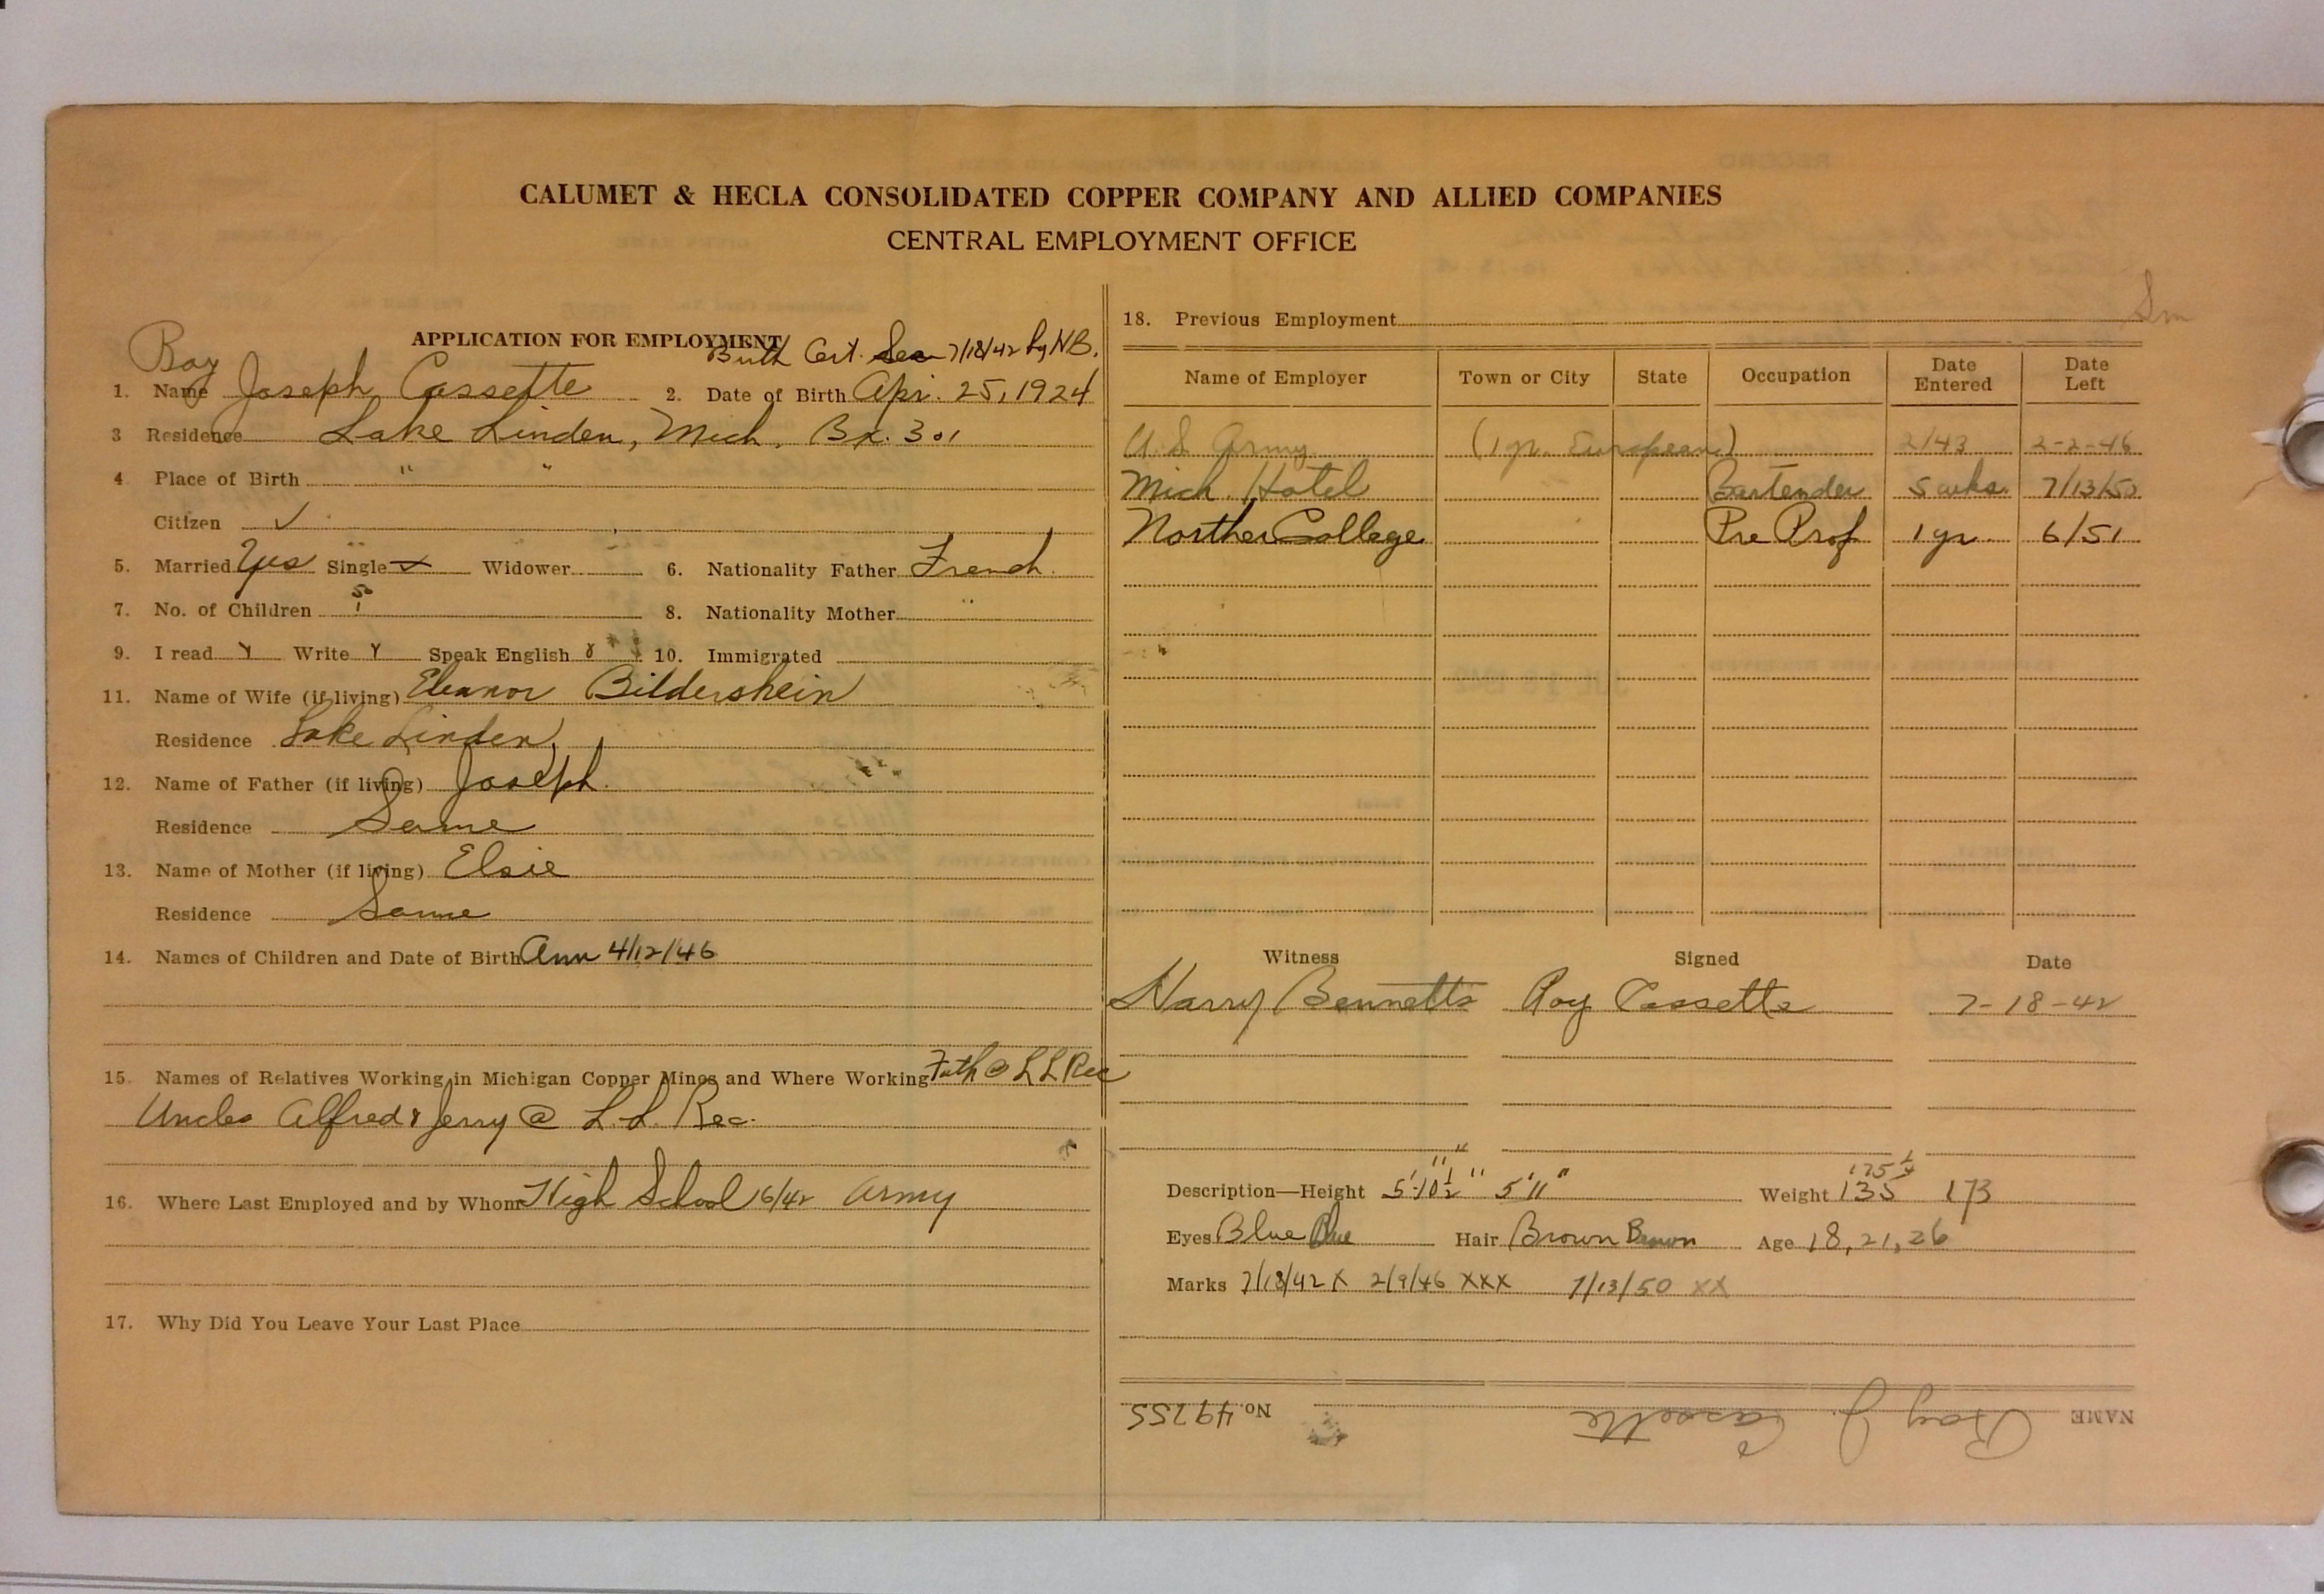 CALUMET & HECLA CONSOLIDATED COPPER COMPANY AND ALLIED COMPANIES
CENTRAL EMPLOYMENT OFFICE
APPLICATION FOR EMPLOYMENT
Birth Cert. Seen 7/18/42 by HB.
1. Name Roy Joseph Cassette 2. Date of Birth Apr. 25, 1924
3 Residence Lake Linden, Mich. Bx. 301
4 Place of Birth " "
Citizen ✓
5. Married Yes Single x Widower 6. Nationality Father French
7. No. of Children 1 8. Nationality Mother "
9. I read Y Write Y Speak English 10. Immigrated
11. Name of Wife (if living) Eleanor Bildershein
Residence Lake Linden,
12. Name of Father (if living) Joseph.
Residence Same
13. Name of Mother (if living) Elsie
Residence Same
14. Names of Children and Date of Birth Ann 4/12/46
15. Names of Relatives Working in Michigan Copper Mines and Where Working Fath @ L L Rec
Uncles Alfred & Jerry @ L. L. Rec.
16. Where Last Employed and by Whom High School 6/42 Army
17. Why Did You Leave Your Last Place
18. Previous Employment
Name of Employer Town or City State Occupation Date Entered Date Left
U.S. Army (1 yr. European) 2/43 2-2-46
Mich. Hotel Bartender 5 wks. 7/13/50
Norther College Pre Prof 1 yr 6/51
Witness Signed Date
Harry Bennetts Roy Cassette 7-18-42
Description—Height 5'-10½" 5'11" Weight 135 175¼ 173
Eyes Blue Blue Hair Brown Brown Age 18, 21, 26
Marks 7/18/42 X 2/9/46 XXX 7/13/50 XX
NAME Roy J. Cassette No. 49255